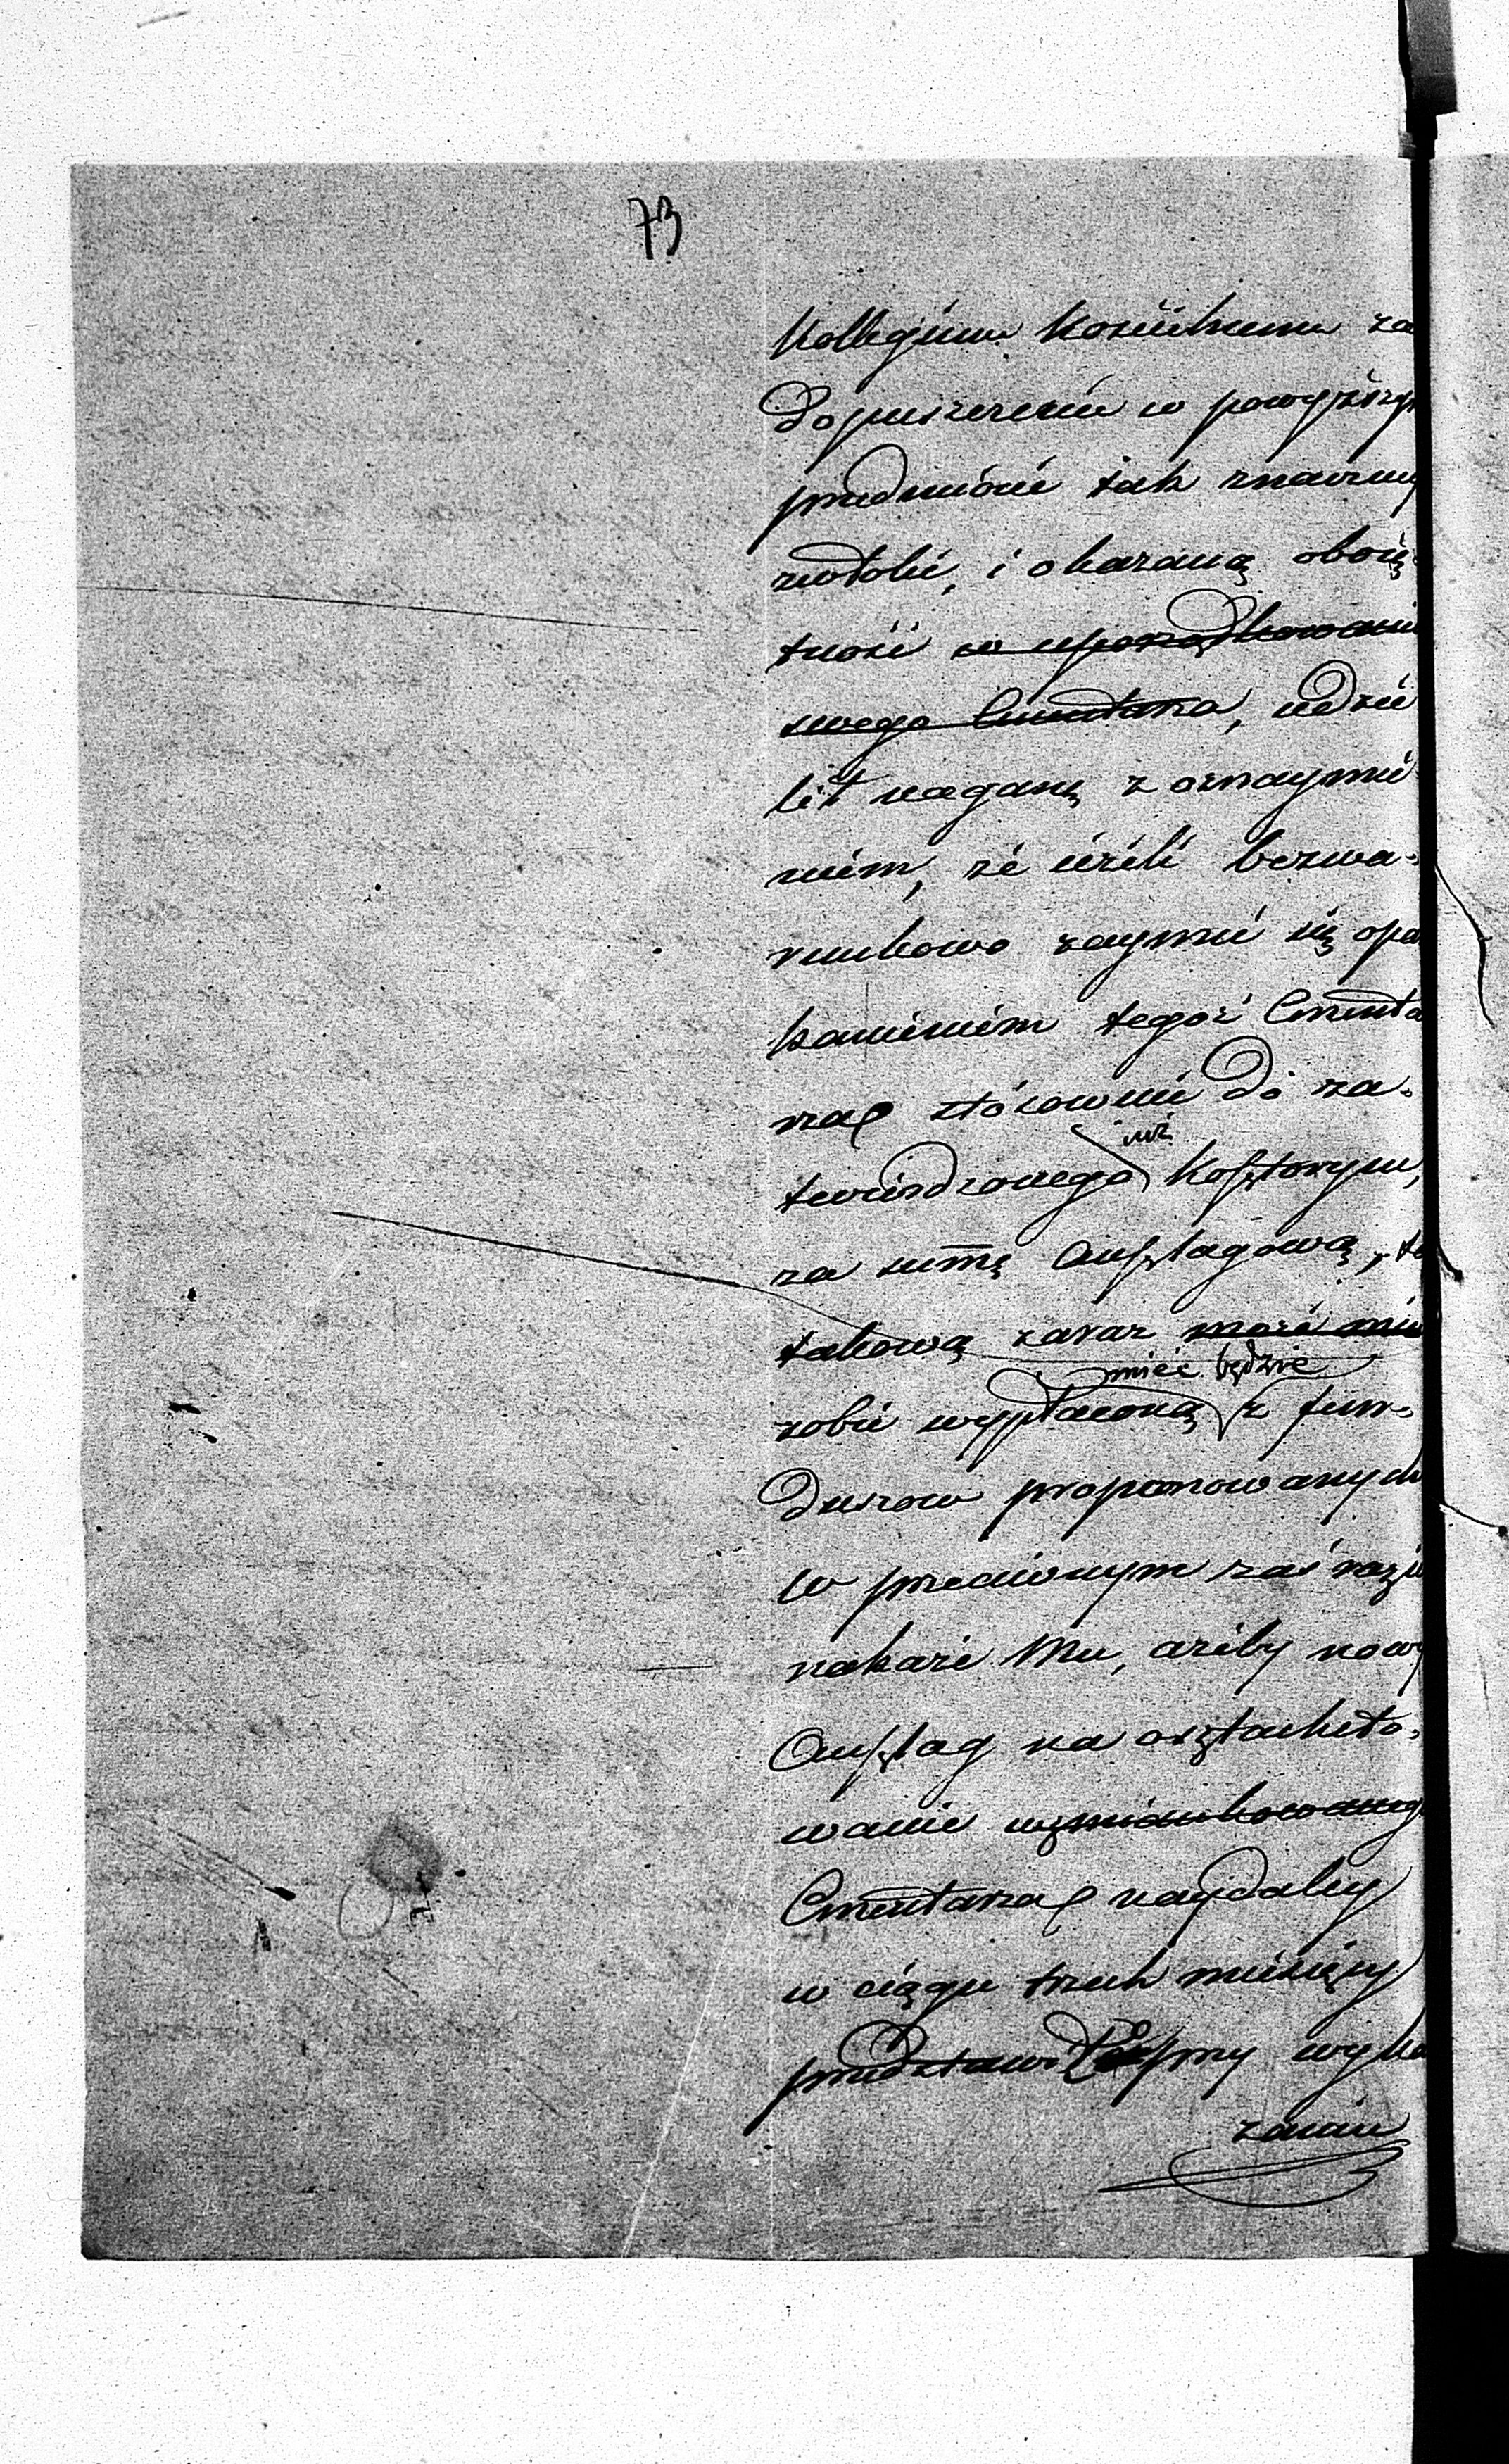 73
Kollegium Kościelnemu za
dopuszczenie w powyższy
przedmiocie tak znaczney
zwłoki, i okazaną oboię-
tność w uporządkowaniu
swego Cmentarza, udzie
lił naganę z oznaymie
niem, że ieżeli bezwa-
runkowo zaymie się opar
kanieniem tegoż Cmenta
rza stósownie do za-
twierdzonego już Kosztorysu,
za summę Anszlagową, to
takową zaraz może mieć
sobie wypłaconą mieć będzie z fun-
duszow proponowanych
w przeciwnym zaś razie
nakaże Mu, ażeby nowy
Anszlag na osztacheto-
wanie wzmiankowanego
Cmentarza naydaley
w ciągu trzech miesięcy
przedstawił przy wyka
zaniu